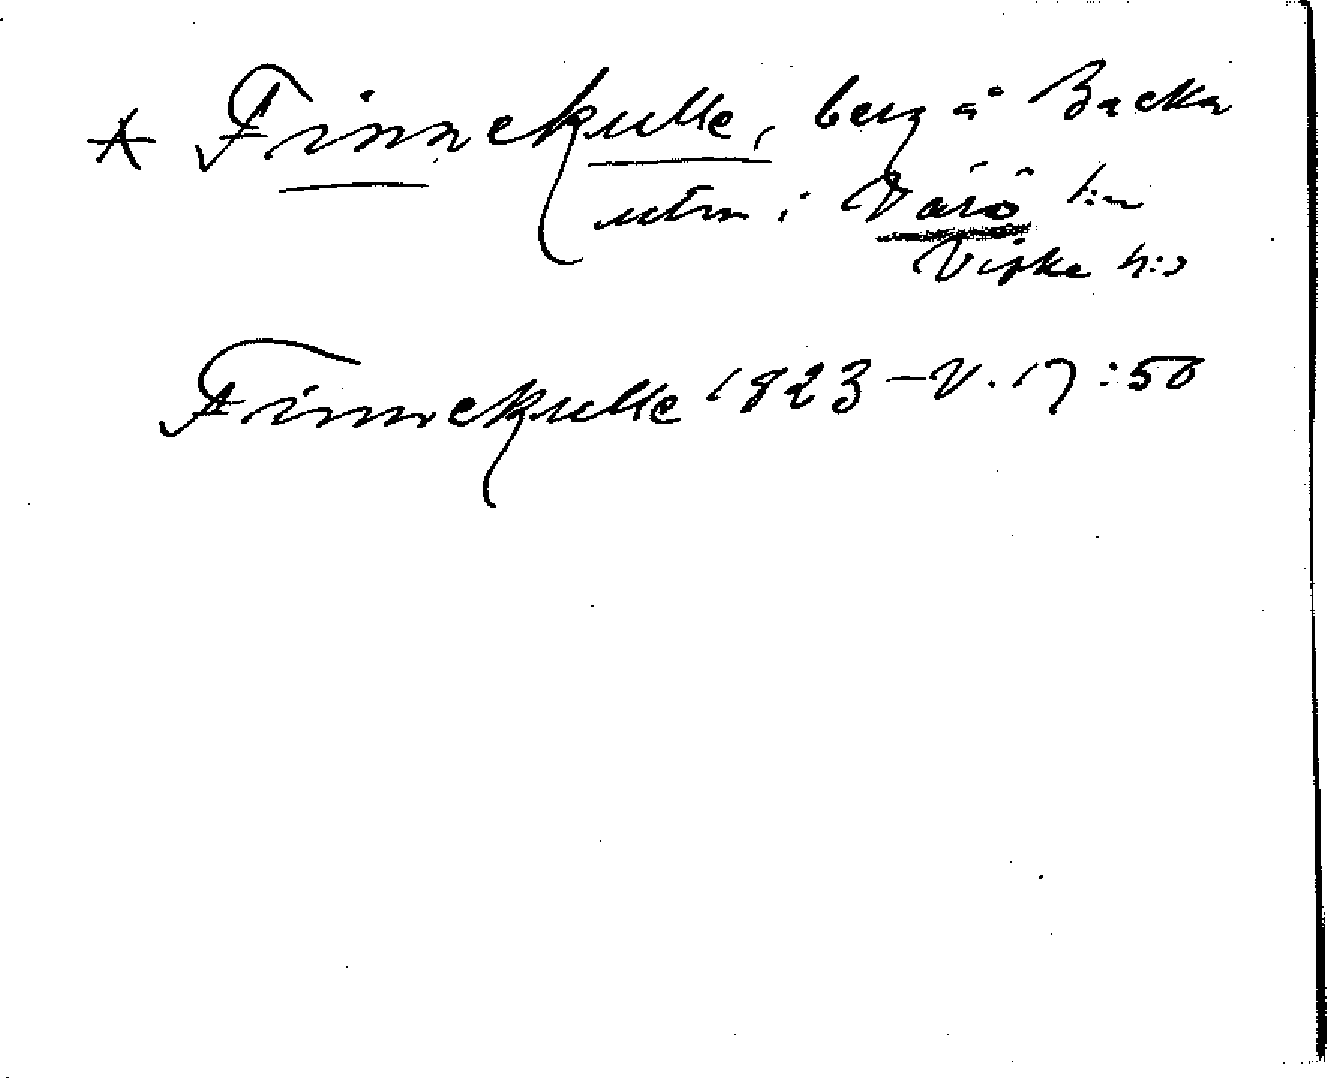 * Finnekulle, berg å Backa
utm i Värö s:n
Viske h:d
Finnekulle 1823 – V. 17:50